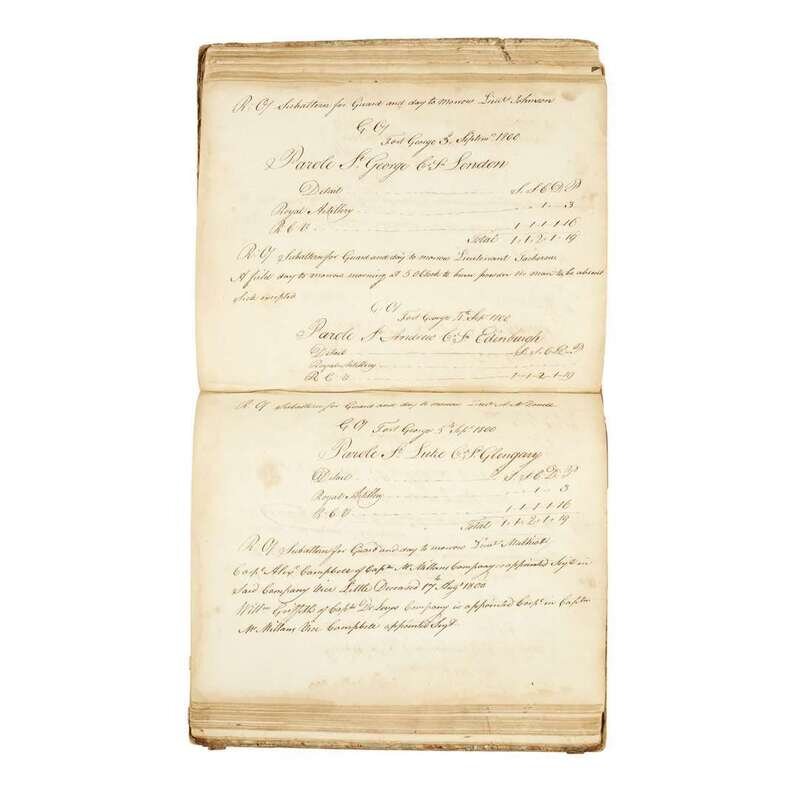 R. O/ Subaltern for Guard and day to morrow Lieut. Johnson
G O/
Fort George 3d. Septemr. 1800
Parole St. George C.S. London
Detail S. S. C. D. P
Royal Artillery 1 - 3
R C V 1 - 1 - 1 - 1 - 16
Total 1 - 1 - 2 - 1 - 19
R. O/ Subaltern for Guard and day to morrow Lieutenant
A field day to morrow morning at 5 oClock to burn powder no man to be absent
Sick excepted
G O/
Fort George Sepr. 1800
Parole St. Andrew C.S. Edinburgh
Detail S. S. C. D. P
Royal Artillery
R C V 1 - 1 - 2 - 1 - 19
R O/ Subaltern for Guard and day to morrow Lieut.
G O/ Fort George 5th. Sepr. 1800
Parole St. Luke C.S. Glengary
Detail S. S. C. D. P
Royal Artillery 1 - 3
R C V 1 - 1 - 1 - 1 - 16
Total 1 - 1 - 2 - 1 - 19
R O/ Subaltern for Guard and day to morrow Lieut. Mathiot
Corpl. Alexr. Campbell of Captn. McMillans Company is appointed Serjt. in
Said Company Vice Little Deceased 17th. Augt. 1800
Willm. Griffith of Captn. Company is appointed Corpl. in Captn.
McMillans Vice Campbell appointed Serjt.